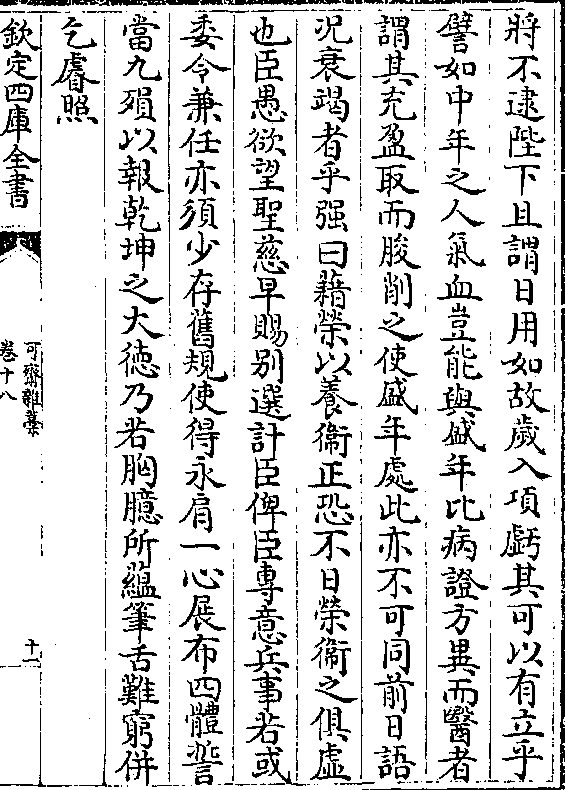 將不逮陛下且謂日用如故歲入項虧其可以有立乎
譬如中年之人氣血豈能與盛年比病證方異而醫者
謂其充盈取而朘削之使盛年處此亦不可同前日語
况衰竭者乎强曰藉榮以養衞正恐不日榮衞之俱虛
也臣愚欲望聖慈早賜别選計臣俾臣專意兵事若或
委令兼任亦須少存舊規使得永肩一心展布四體誓
當九殞以報乾坤之大德乃若胸臆所藴筆舌難窮併
乞睿照
欽定四庫全書
可齋雜藁
卷十八
十一